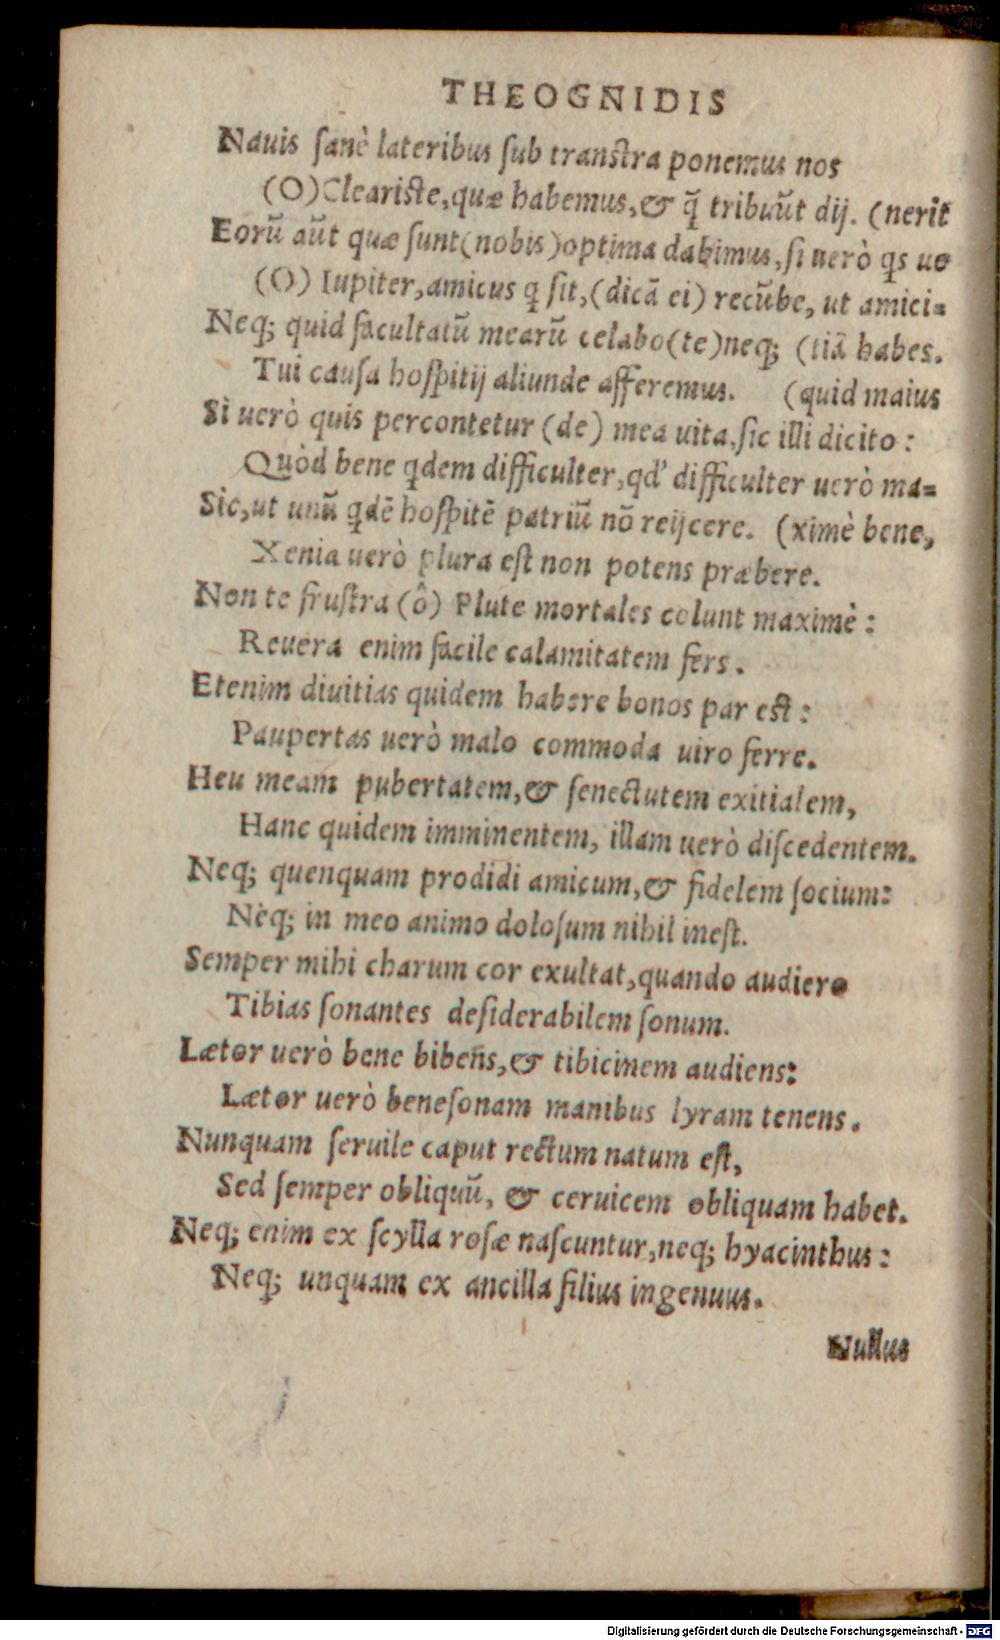 THEOGNIDIS
Nauis ſanè lateribus ſub tranſtra ponemus nos
(O)Cleariſte,quæ habemus,& q̃ tribuũt dij. (nerit
Eorũ aũt quæ ſunt(nobis)optima dabimus,ſi uerò qs ue
(O) Iupiter,amicus q ſit,(dicã ei) recũbe, ut amici=
Neq; quid facultatũ mearũ celabo(te)neq; (tiã habes.
Tui cauſa hoſpitij aliunde afferemus. (quid maius
Si uerò quis percontetur (de) mea uita,ſic illi dicito :
Quòd bene qdem difficulter,qd' difficulter uerò ma=
Sic,ut unũ qdẽ hoſpitẽ patriũ nõ reijcere. (ximè bene,
Xenia uerò plura eſt non potens præbere.
Non te fruſtra (ô) Plute mortales colunt maximè :
Reuera enim facile calamitatem fers.
Etenim diuitias quidem habere bonos par eſt :
Paupertas uerò malo commoda uiro ferre.
Heu meam pubertatem,& ſenectutem exitialem,
Hanc quidem imminentem, illam uerò diſcedentem.
Neq; quenquam prodidi amicum,& fidelem ſocium:
Neq; in meo animo doloſum nihil ineſt.
Semper mihi charum cor exultat,quando audiero
Tibias ſonantes deſiderabilem ſonum.
Lætor uerò bene bibens,& tibicinem audiens:
Lætor uerò beneſonam manibus lyram tenens.
Nunquam ſeruile caput rectum natum eſt,
Sed ſemper obliquũ, & ceruicem obliquam habet.
Neq; enim ex ſcylla roſæ naſcuntur,neq; hyacinthus :
Neq; unquam ex ancilla filius ingenuus.
Nullus
Digitalisierung gefördert durch die Deutsche Forschungsgemeinschaft - DFG